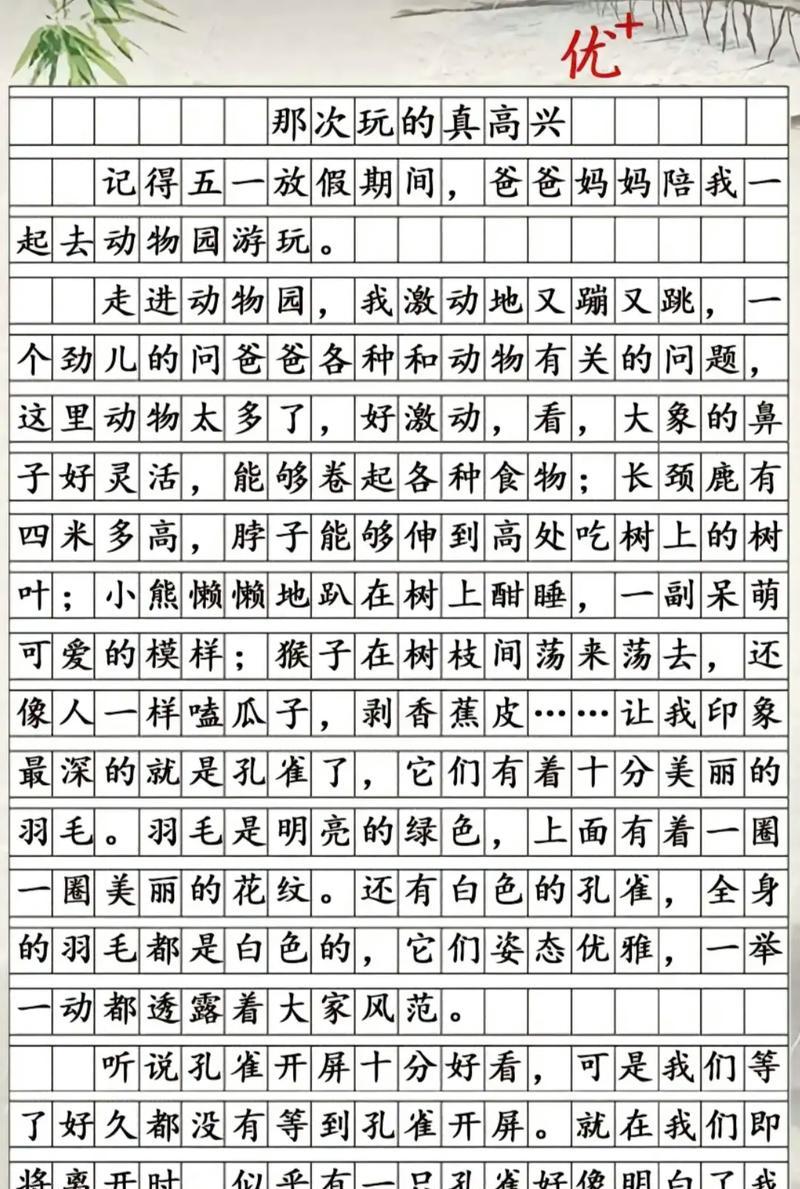 优+
那次玩的真高兴
记得五一放假期间，爸爸妈妈陪我一
起去动物园游玩。
走进动物园，我激动地又蹦又跳，一
个劲儿的问爸爸各种和动物有关的问题，
这里动物太多了，好激动，看，大象的鼻
子好灵活，能够卷起各种食物；长颈鹿有
四米多高，脖子能够伸到高处吃树上的树
叶；小熊懒懒地趴在树上酣睡，一副呆萌
可爱的模样；猴子在树枝间荡来荡去，还
像人一样嗑瓜子，剥香蕉皮……让我印象
最深的就是孔雀了，它们有着十分美丽的
羽毛。羽毛是明亮的绿色，上面有着一圈
一圈美丽的花纹。还有白色的孔雀，全身
的羽毛都是白色的，它们姿态优雅，一举
一动都透露着大家风范。
听说孔雀开屏十分好看，可是我们等
了好久都没有等到孔雀开屏。就在我们即
将离开时，似乎有一只孔雀好像明白了我